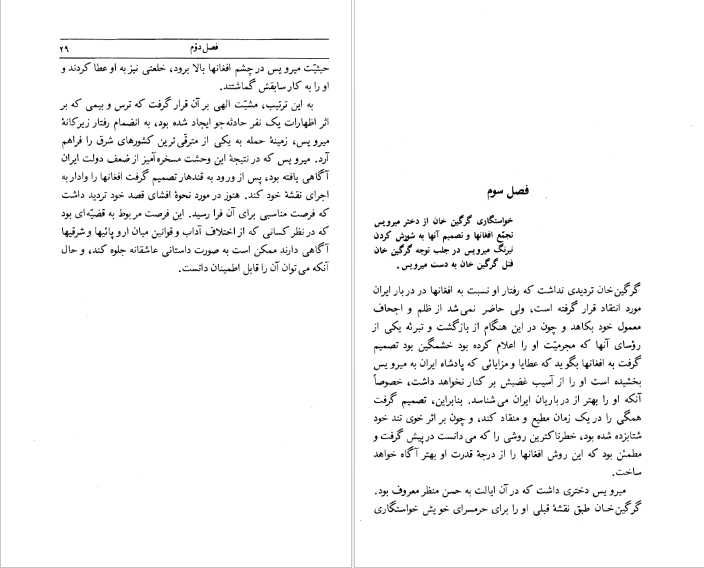 فصل دوّم
۲۹
حیثیّت میرویس در چشم افغانها بالا برود، خلعتی نیز به او عطا کردند و
او را به کار سابقش گماشتند.
به این ترتیب، مشیّت الهی بر آن قرار گرفت که ترس و بیمی که بر
اثر اظهارات یک نفر حادثه‌جو ایجاد شده بود، به انضمام رفتار زیرکانهٔ
میرویس، زمینهٔ حمله به یکی از مترقّی‌ترین کشورهای شرق را فراهم
آرد. میرویس که در نتیجهٔ این وحشت مسخره‌آمیز از ضعف دولت ایران
آگاهی یافته بود، پس از ورود به قندهار تصمیم گرفت افغانها را وادار به
اجرای نقشهٔ خود کند. هنوز در مورد نحوهٔ افشای قصد خود تردید داشت
که فرصت مناسبی برای آن فرا رسید. این فرصت مربوط به قضیّه‌ای بود
که در نظر کسانی که از اختلاف آداب و قوانین میان اروپائیها و شرقیها
آگاهی دارند ممکن است به صورت داستانی عاشقانه جلوه کند، و حال
آنکه می‌توان آن را قابل اطمینان دانست.
فصل سوم
خواستگاری گرگین خان از دختر میرویس
تجمّع افغانها و تصمیم آنها به شورش کردن
نیرنگ میرویس در جلب توجه گرگین خان
قتل گرگین خان به دست میرویس.
گرگین‌خان تردیدی نداشت که رفتار او نسبت به افغانها در دربار ایران
مورد انتقاد قرار گرفته است، ولی حاضر نمی‌شد از ظلم و اجحاف
معمول خود بکاهد و چون در این هنگام از بازگشت و تبرئه یکی از
رؤسای آنها که مجرمیّت او را اعلام کرده بود خشمگین بود تصمیم
گرفت به افغانها بگوید که عطایا و مزایائی که پادشاه ایران به میرویس
بخشیده است او را از آسیب غضبش بر کنار نخواهد داشت، خصوصاً
آنکه او را بهتر از درباریان ایران می‌شناسد. بنابراین، تصمیم گرفت
همگی را در یک زمان مطیع و منقاد کند، و چون بر اثر خوی تند خود
شتابزده شده بود، خطرناکترین روشی را که می‌دانست در پیش گرفت و
مطمئن بود که این روش افغانها را از درجهٔ قدرت او بهتر آگاه خواهد
ساخت.
میرویس دختری داشت که در آن ایالت به حسن منظر معروف بود.
گرگین‌خان طبق نقشهٔ قبلی او را برای حرمسرای خویش خواستگاری